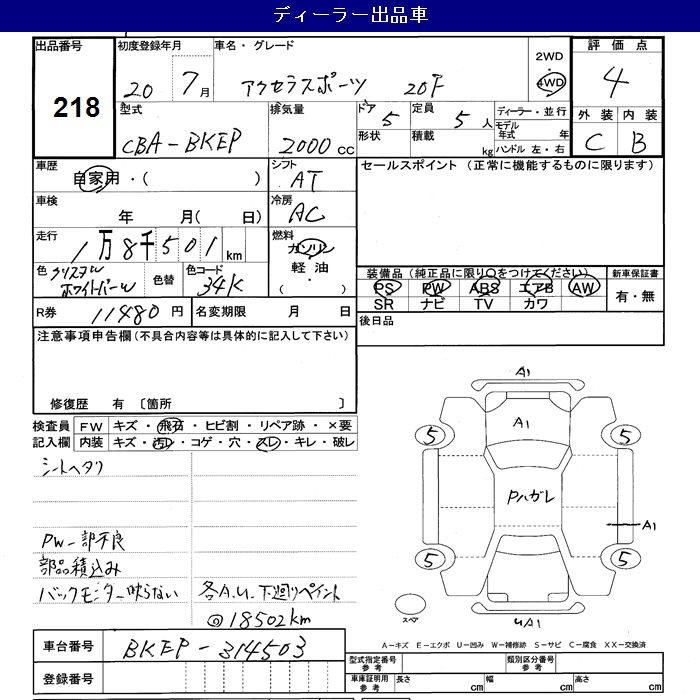 ディーラー出品車
出品番号 初度登録年月 車名・グレード 2WD・4WD 評価点
218
20 7月 アクセラスポーツ 20F 4
型式 排気量 ドア 5 定員 5人 ディーラー・並行 外装 内装
CBA-BKEP 2000cc 形状 積載 kg モデル年式 年 C B
ハンドル 左・右
車歴 シフト セールスポイント (正常に機能するものに限ります)
自家用・( ) AT
車検 冷房
年 月( 日) AC
走行 燃料
1万8千501km ガソリン
軽油
・( )
色 クリスタルホワイトパール 色替 色コード 34K
装備品(純正品に限り○をつけてください) 新車保証書
PS PW ABS エアB AW 有・無
SR ナビ TV カワ
R券 11480円 名変期限 月 日 後日品
注意事項申告欄(不具合内容等は具体的に記入して下さい)
修復歴 有 〔箇所 〕
検査員 FW キズ・飛石・ヒビ割・リペア跡・×要
記入欄 内装 キズ・汚レ・コゲ・穴・スレ・キレ・破レ
シートヘタリ
PW一部不良
部品積込み
バックモニター映らない 各A.U. 下廻りペイント
@18502km
A1
A1
5 5
Pハガレ
A1
5 5
スペア
4A1
A-キズ E-エクボ U-凹み W-補修跡 S-サビ C-腐食 XX-交換済
車台番号 BKEP-314503
登録番号
型式指定番号 参考 類別区分番号 参考
車庫証明用 参考 長さ cm 幅 cm 高さ cm